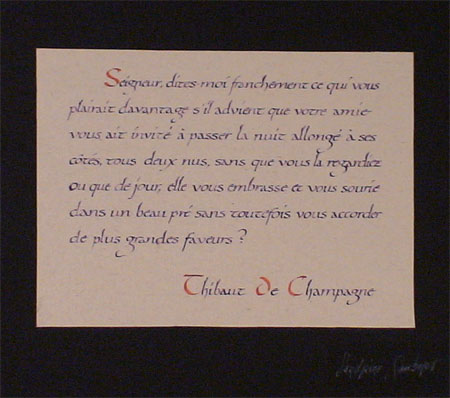 Seigneur, dites-moi franchement ce qui vous
plairait davantage s'il advient que votre amie
vous ait invité à passer la nuit allongé à ses
côtés, tous deux nus, sans que vous la regardiez
ou que de jour, elle vous embrasse et vous sourie
dans un beau pré sans toutefois vous accorder
de plus grandes faveurs ?
Thibaut De Champagne